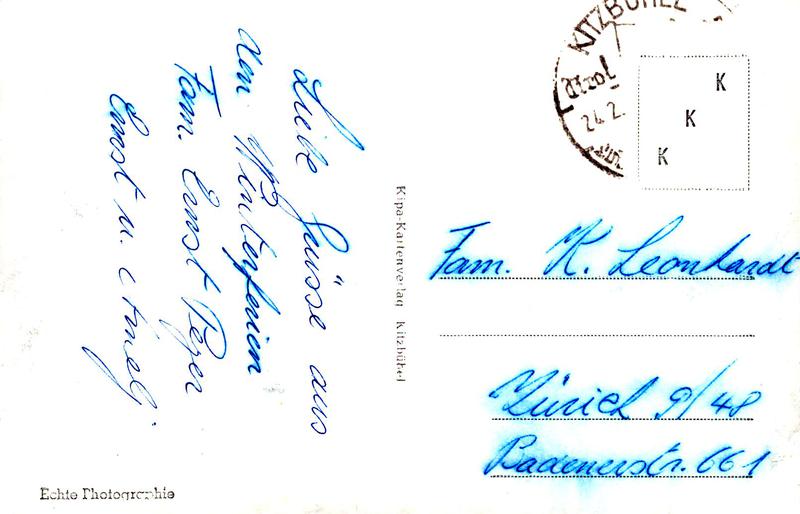 Liebe Grüsse aus
den Winterferien
Fam. Ernst Peyer
Ernst u.
Echte Photographie
Kipa-Kartenverlag Kitzbühel
KITZBÜHEL
Tirol
24.2.
K
K
K
Fam. K. Leonhardt
Zürich 9/48
Badenerstr. 661